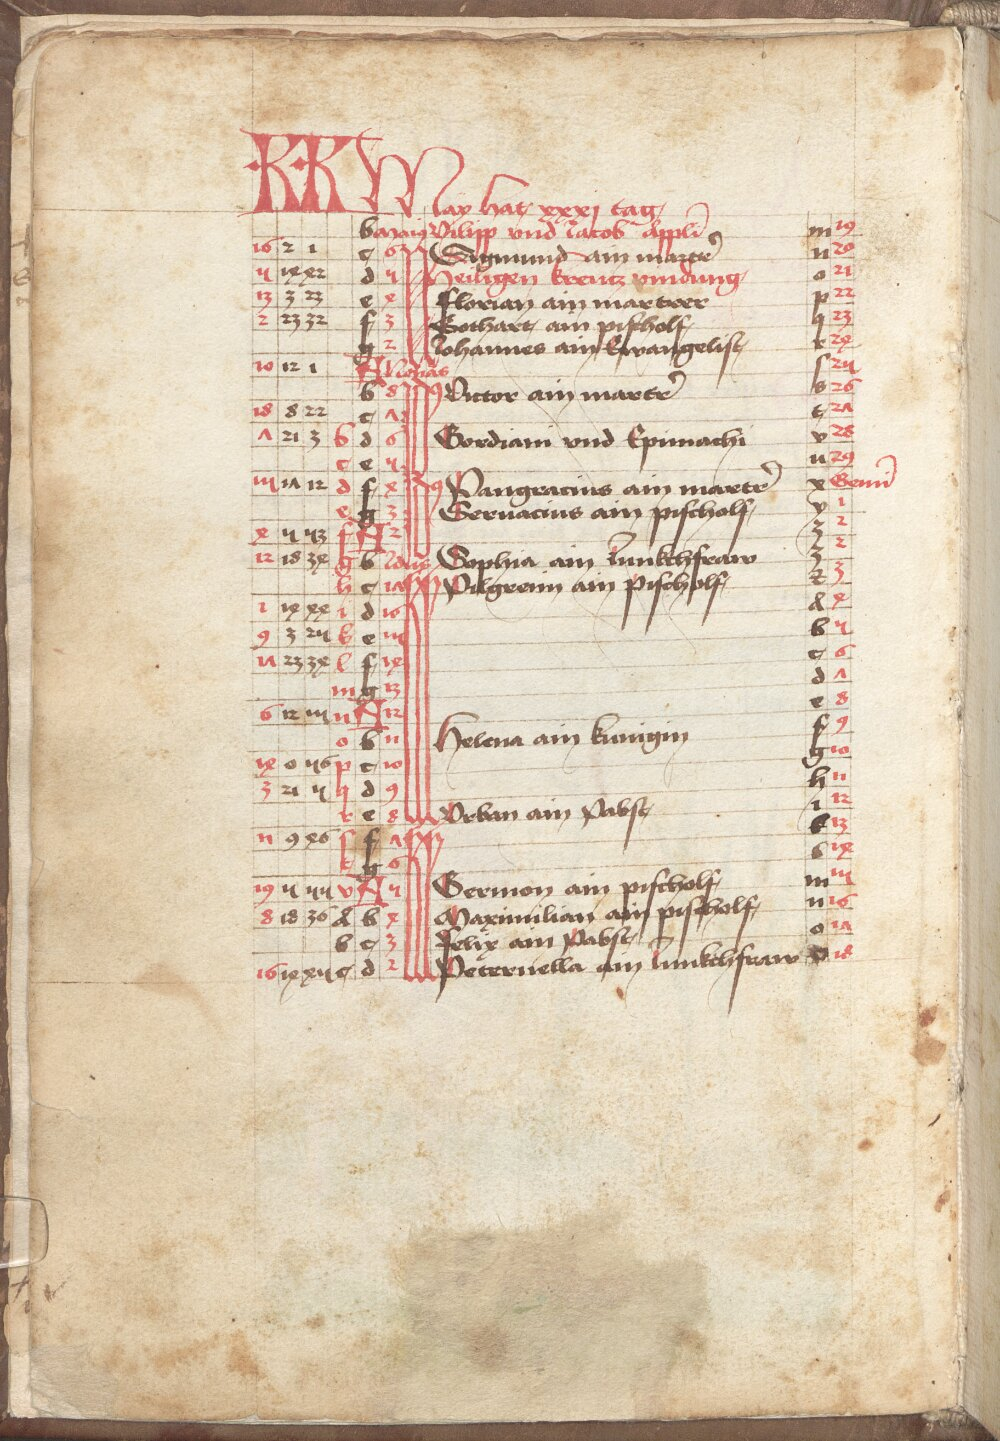 KK May hat xxxj tag
b Maius Vilipp vnd Jacob Appli m 19
16 2 1 c 6 Sigmund ain martrer n 20
5 14 42 d 5 Heiligen kreutz vindung o 21
13 3 23 e 4 Florian ain martrer p 22
2 23 32 f 3 Gothart ain pischolf q 23
g 2 Johannes ain Ewangelist r 24
10 12 1 A Nonas s 25
b 8 Victor ain martrer s 26
18 8 22 c 7 t 27
7 21 3 b d 6 Gordiani vnd Epimachi v 28
c e 5 u 29
15 17 12 d f 4 Pangracius ain martrer x Gemini
e g 3 Seruacius ain pischolf y 1
4 5 53 f A 2 z 2
12 18 34 g b Idus Sophia ain Junkchfraw z 2
h c 17 Pilgreim ain Pischolf z 3
1 14 44 i d 16 a 4
9 3 25 k e 15 b 5
17 23 34 l f 14 c 6
m g 13 d 7
6 12 15 n A 12 e 8
o b 11 Helena ain kunigin f 9
14 0 56 p c 10 g 10
3 21 5 q d 9 h 11
r e 8 Vrban ain Pabst i 12
11 9 46 s f 7 k 13
t g 6 l 14
19 5 55 v A 5 Germon ain pischolf m 15
8 18 36 a b 4 Maximilian ain pischolf n 16
b c 3 Felix ain Pabst o 17
16 14 45 c d 2 Peternella ain Junkchfraw p 18